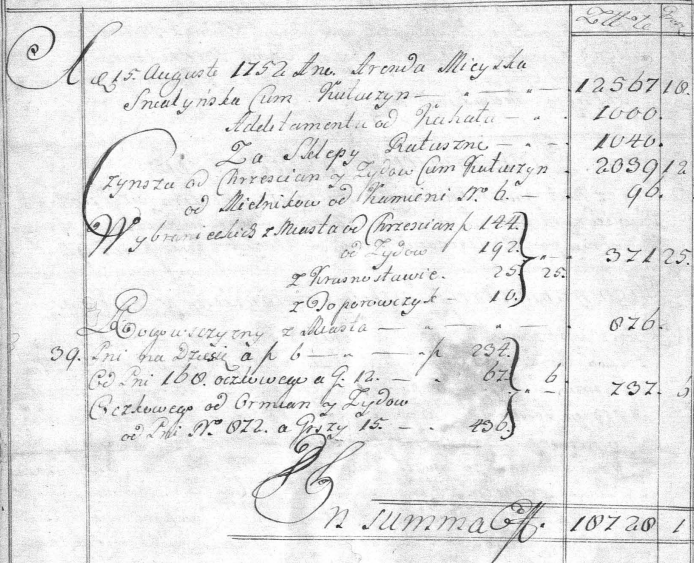 Złłte Grosz
A
d 15. Auguste 1752 Ane. Arenda Mieyska
Sniatyńska Cum Kutaczyn — " — " — 12567 18.
Addetamentu od Kahała — " . 1000.
Za Sklepy Ratuszne — . 1040.
Czynszu od Chrzescian y Zydow Cum Kutaczyn . 2039 12
od Mielnikow od Kamieni No. 6. — . 96.
Wybranieckich z Miasta od Chrzescian p 144.
od Zydow 192. " — 371 25.
z Krasnostawic. 25. 25.
z Doporowczyk — 10.
Rogowszczyzny z Miasta — " — " — . 876.
39. Dni na Dzien a p 6 — " — p 234.
Od Dni 168. oczkowego a G. 12. — . 67. 6. 737. 6
Oczkowego od Ormian y Zydow
od Dni No. 872. a Grszy 15. — . 436.
In summa Eff. 18728 1